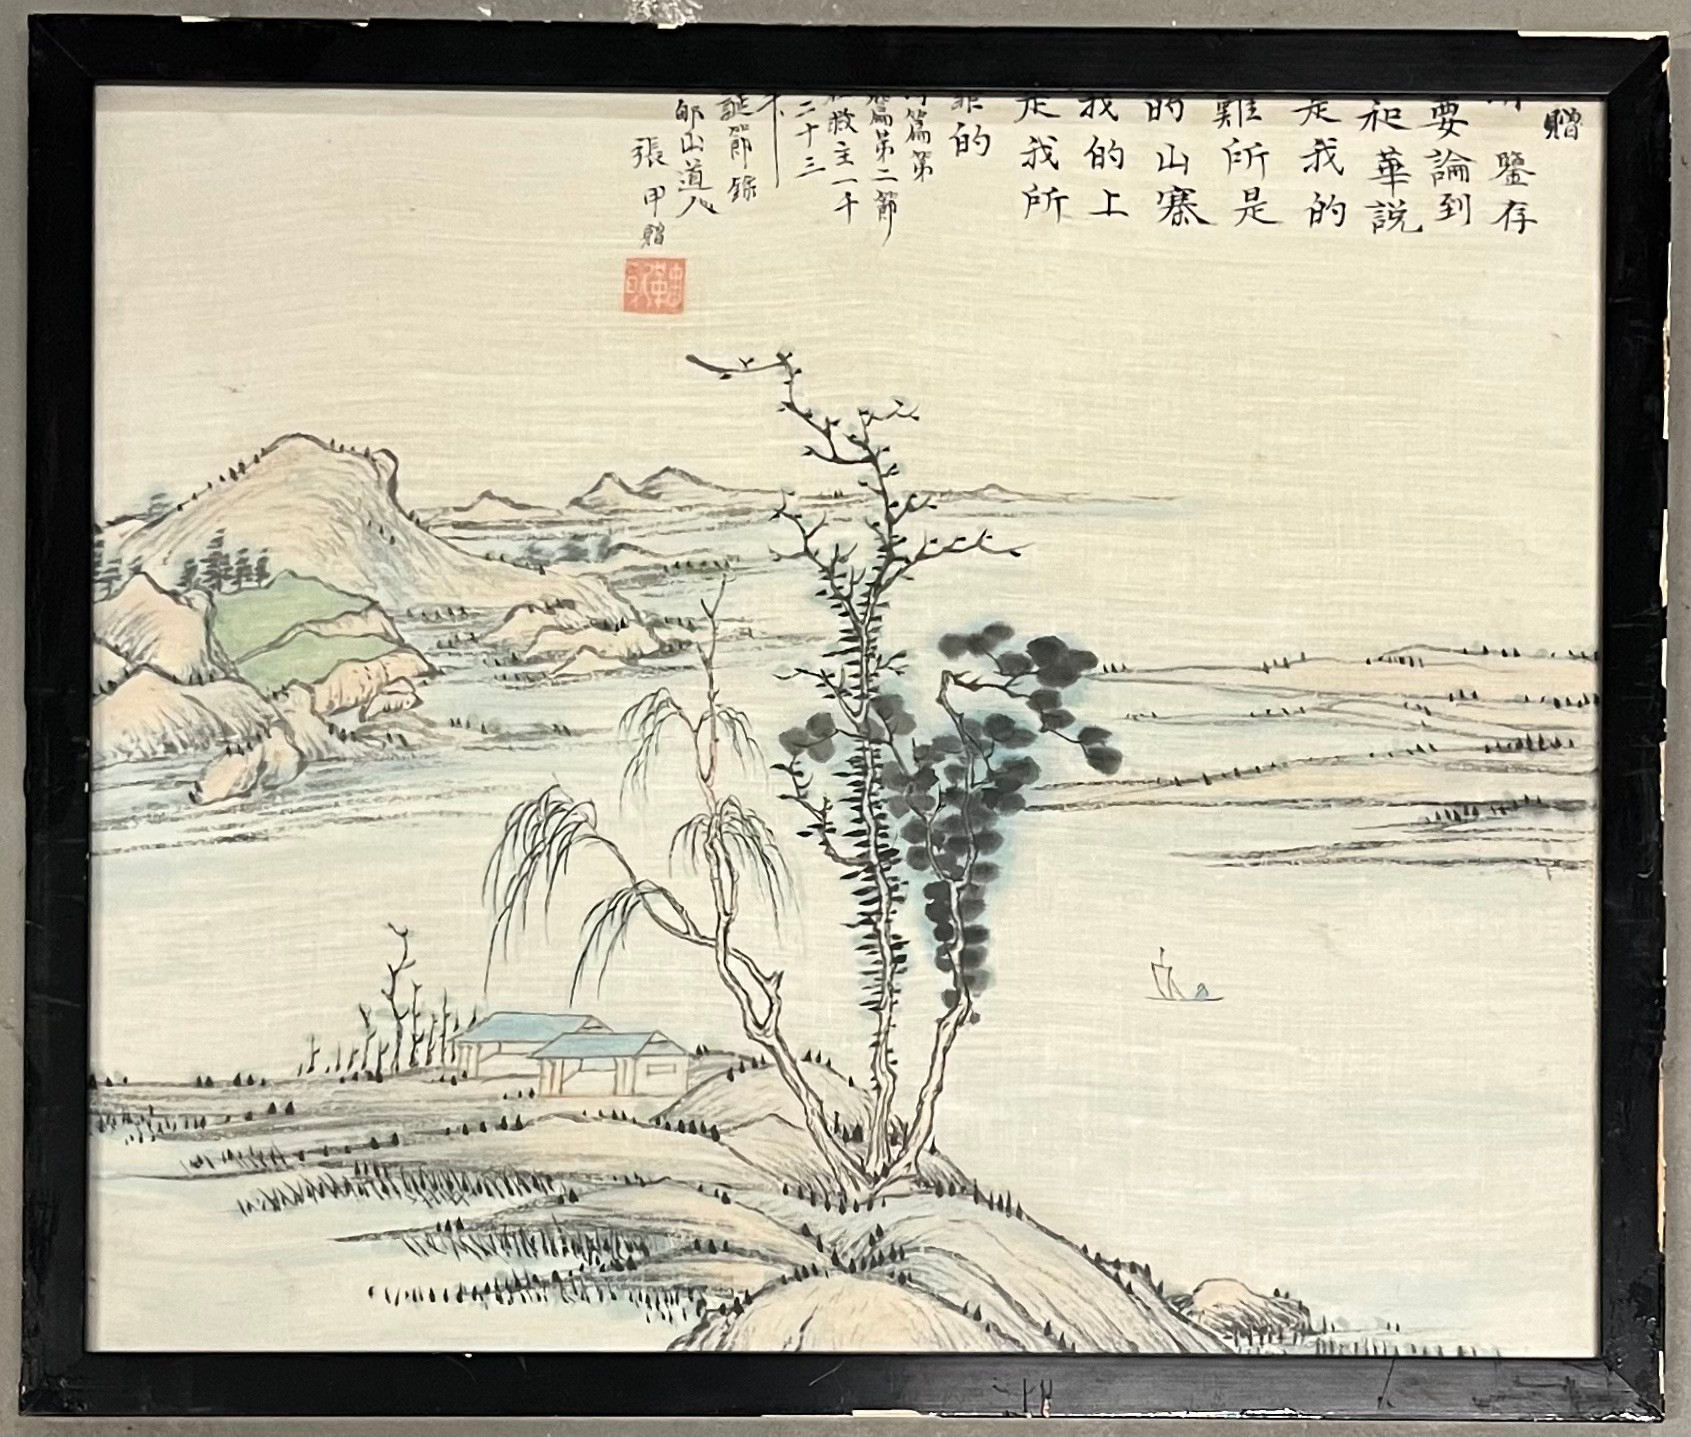 贈
鑒存
要論到
和華説
是我的
難所是
的山寨
我的上
是我所
靠的
篇第
篇第二節
救主一千
二十三
年
誕節錄
邙山道人
張甲贈